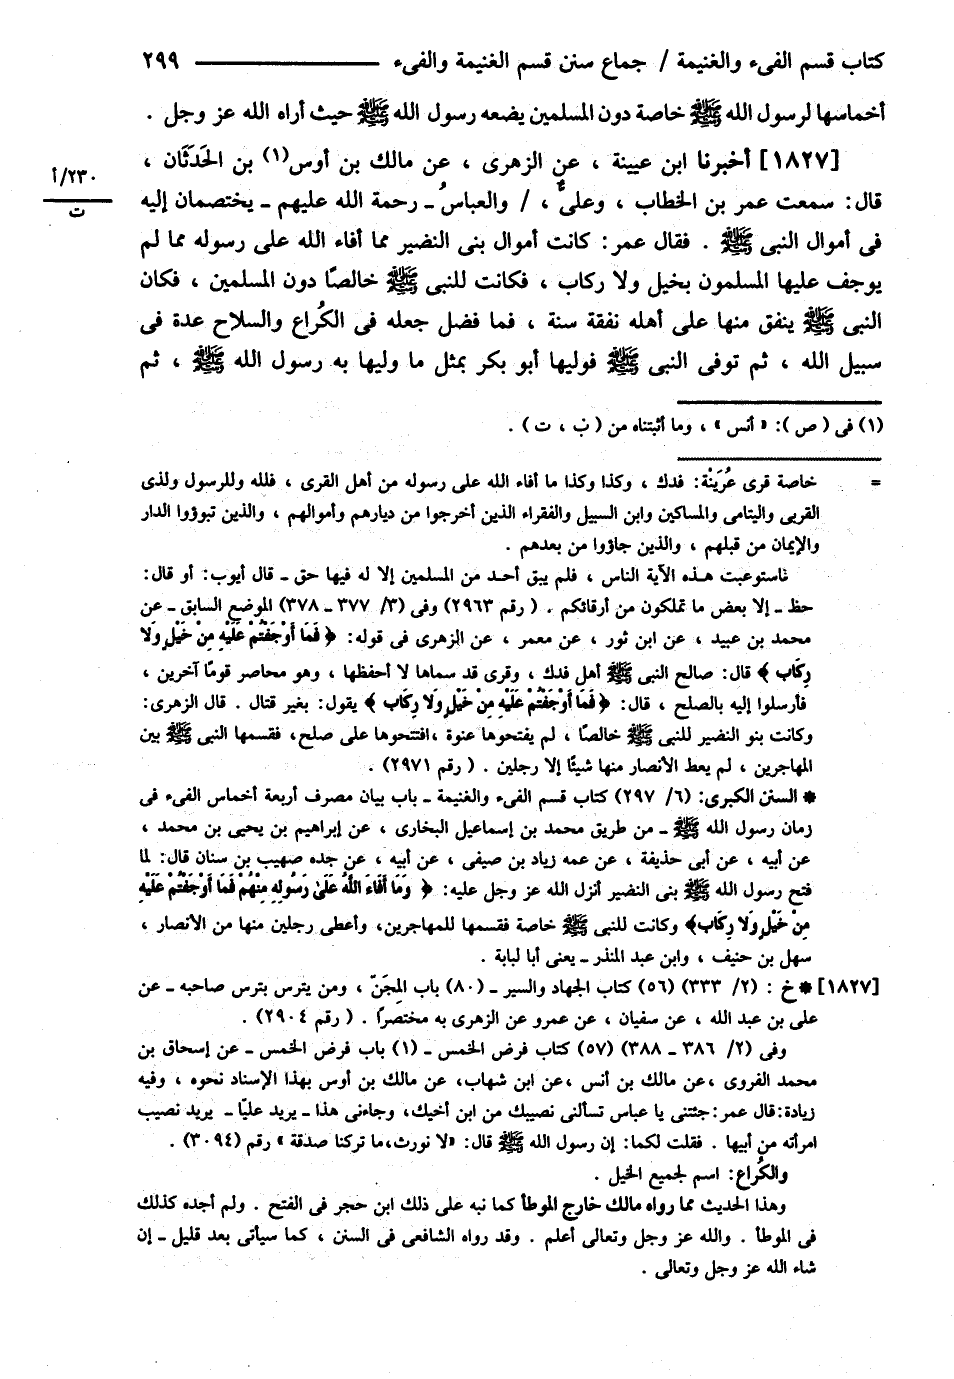 كتاب قسم الفىء والغنيمة / جماع سنن قسم الغنيمة والفىء ــــــــــــــ ٢٩٩
أخماسها لرسول الله ﷺ خاصة دون المسلمين يضعه رسول الله ﷺ حيث أراه الله عز وجل .
[١٨٢٧] أخبرنا ابن عيينة ، عن الزهرى ، عن مالك بن أوس(١) بن الحَدَثَان ،
٢٣٠/أ
ت
قال: سمعت عمر بن الخطاب ، وعلىٌّ ، / والعباسُ ـ رحمة الله عليهم ـ يختصمان إليه
فى أموال النبى ﷺ . فقال عمر: كانت أموال بنى النضير مما أفاء الله على رسوله مما لم
يوجف عليها المسلمون بخيل ولا ركاب ، فكانت للنبى ﷺ خالصًا دون المسلمين ، فكان
النبى ﷺ ينفق منها على أهله نفقة سنة ، فما فضل جعله فى الكُراع والسلاح عدة فى
سبيل الله ، ثم توفى النبى ﷺ فوليها أبو بكر بمثل ما وليها به رسول الله ﷺ ، ثم
(١) فى ( ص ): « أنس » ، وما أثبتناه من ( ب ، ت ) .
= خاصة قرى عُرَيْنَة: فدك ، وكذا وكذا ما أفاء الله على رسوله من أهل القرى ، فلله وللرسول ولذى
القربى واليتامى والمساكين وابن السبيل والفقراء الذين أخرجوا من ديارهم وأموالهم ، والذين تبوؤوا الدار
والإيمان من قبلهم ، والذين جاؤوا من بعدهم .
فاستوعبت هـذه الآية الناس ، فلم يبق أحـد من المسلمين إلا له فيها حق ـ قال أيوب: أو قال:
حظ ـ إلا بعض ما تملكون من أرقائكم . ( رقم ٢٩٦٣) وفى (٣/ ٣٧٧ ـ ٣٧٨) الموضع السابق ـ عن
محمد بن عبيد ، عن ابن ثور ، عن معمر ، عن الزهرى فى قوله: ﴿ فَمَا أَوْجَفْتُمْ عَلَيْهِ مِنْ خَيْلٍ وَلَا
رِكَابٍ ﴾ قال: صالح النبى ﷺ أهل فدك ، وقرى قد سماها لا أحفظها ، وهو محاصر قومًا آخرين ،
فأرسلوا إليه بالصلح ، قال: ﴿ فَمَا أَوْجَفْتُمْ عَلَيْهِ مِنْ خَيْلٍ وَلا رِكَابٍ ﴾ يقول: بغير قتال . قال الزهرى:
وكانت بنو النضير للنبى ﷺ خالصًا ، لم يفتحوها عنوة ،افتتحوها على صلح، فقسمها النبى ﷺ بين
المهاجرين ، لم يعط الأنصار منها شيئًا إلا رجلين . ( رقم ٢٩٧١) .
* السنن الكبرى: (٦/ ٢٩٧) كتاب قسم الفىء والغنيمة ـ باب بيان مصرف أربعة أخماس الفىء فى
زمان رسول الله ﷺ ـ من طريق محمد بن إسماعيل البخارى ، عن إبراهيم بن يحيى بن محمد ،
عن أبيه ، عن أبى حذيفة ، عن عمه زياد بن صيفى ، عن أبيه ، عن جده صهيب بن سنان قال: لما
فتح رسول الله ﷺ بنى النضير أنزل الله عز وجل عليه: ﴿ وَمَا أَفَاءَ اللَّهُ عَلَىٰ رَسُولِهِ مِنْهُمْ فَمَا أَوْجَفْتُمْ عَلَيْهِ
مِنْ خَيْلٍ وَلَا رِكَابٍ﴾ وكانت للنبى ﷺ خاصة فقسمها للمهاجرين، وأعطى رجلين منها من الأنصار ،
سهل بن حنيف ، وابن عبد المنذر ـ يعنى أبا لبابة .
[١٨٢٧] * خ : (٢/ ٣٣٣) (٥٦) كتاب الجهاد والسير ـ (٨٠) باب المِجَنّ ، ومن يترس بترس صاحبه ـ عن
على بن عبد الله ، عن سفيان ، عن عمرو عن الزهرى به مختصرًا . ( رقم ٢٩٠٤) .
وفى (٢/ ٣٨٦ ـ ٣٨٨) (٥٧) كتاب فرض الخمس ـ (١) باب فرض الخمس ـ عن إسحاق بن
محمد الفروى ،عن مالك بن أنس ،عن ابن شهاب، عن مالك بن أوس بهذا الإسناد نحوه ، وفيه
زيادة:قال عمر:جئتنى يا عباس تسألنى نصيبك من ابن أخيك، وجاءنى هذا ـ يريد عليّا ـ يريد نصيب
امرأته من أبيها . فقلت لكما: إن رسول الله ﷺ قال: «لا نورث،ما تركنا صدقة » رقم (٣٠٩٤) .
والكُراع: اسم لجميع الخيل .
وهذا الحديث مما رواه مالك خارج الموطأ كما نبه على ذلك ابن حجر فى الفتح . ولم أجده كذلك
فى الموطأ . والله عز وجل وتعالى أعلم . وقد رواه الشافعى فى السنن ، كما سيأتى بعد قليل ـ إن
شاء الله عز وجل وتعالى .